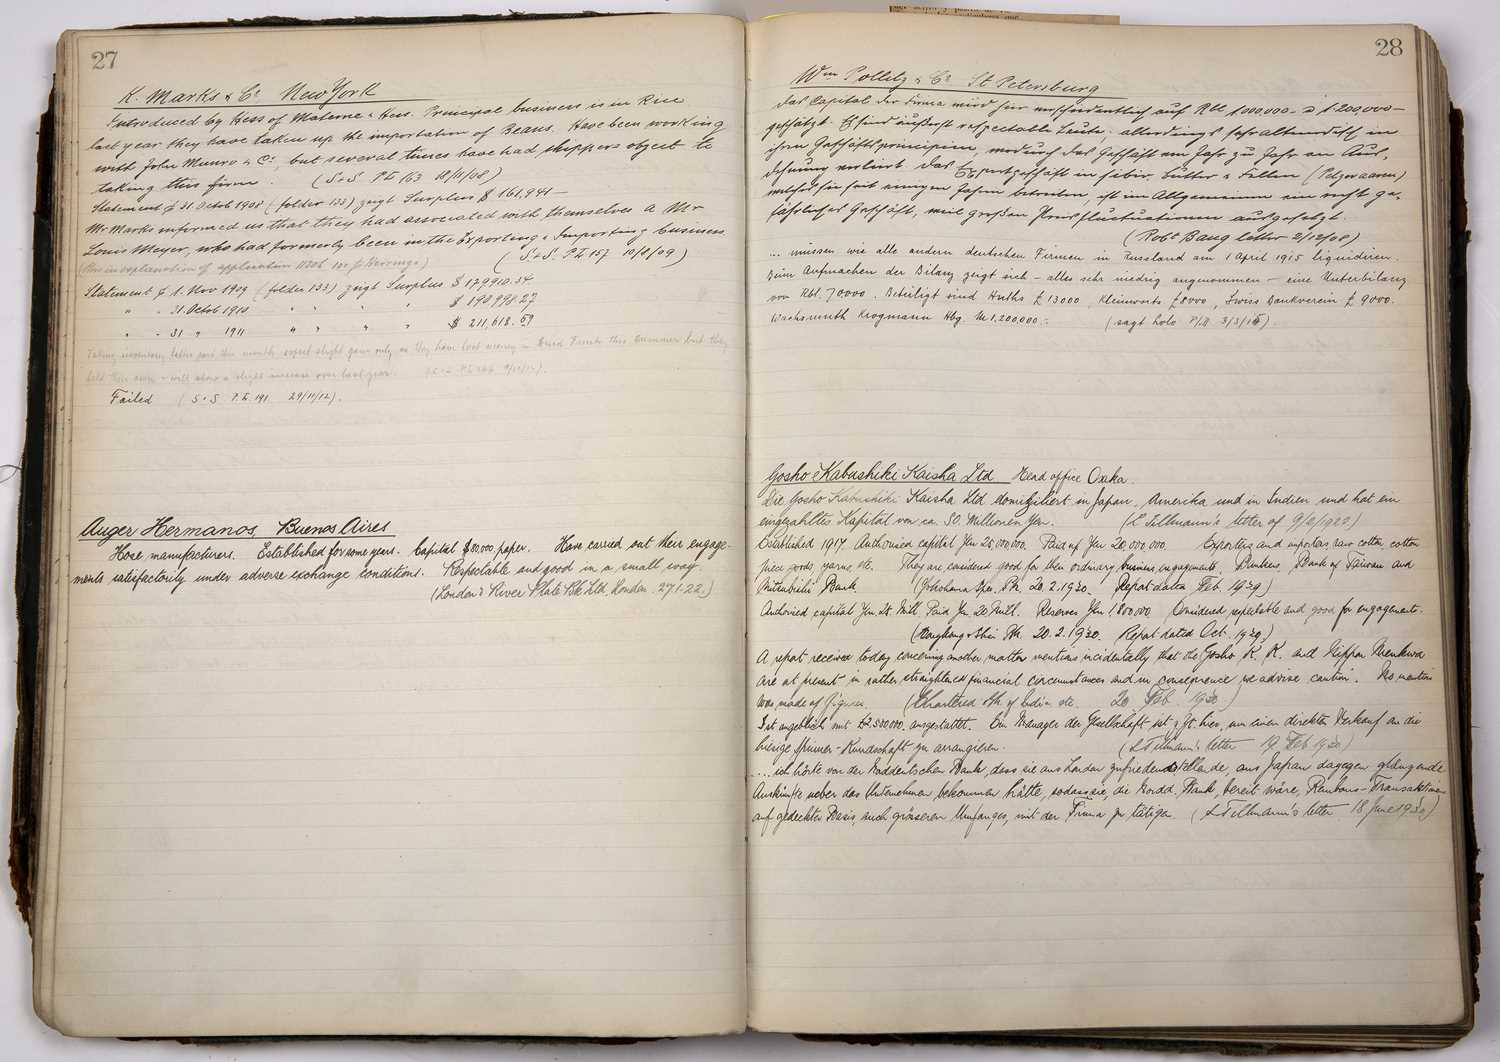 27
K. Marks & Co New York
Introduced by Hess of Materne & Hess. Principal business is in Rice
last year they have taken up the importation of Beans. Have been working
with John Munro & Co, but several times have had shippers object to
taking this firm. (S & S. P.L. 163 18/11/08)
Statement of 31 Octob 1908 (folder 133) zeigt Surplus $ 161,941—
Mr Marks informed us that they had associated with themselves a Mr
Louis Meyer, who had formerly been in the Exporting & Importing business
(this in explanation of application for Herrings) (S & S. P.L. 157 10/8/09)
Statement of 1. Nov 1909 (folder 133) zeigt Surplus $ 179910.54
" " 31. Octob 1910 " " " " $ 190998.27
" " 31 " 1911 " " " " $ 211,618.59
Taking inventory latter part this month expect slight gain only as they have lost money in Dried Fruits this summer but they
held their own & will show a slight increase over last year. (S & S P.L. 9/11/12).
Failed (S & S P.L. 191 29/11/12).
Auger Hermanos, Buenos Aires
Hose manufacturers. Established for some years. Capital $80,000 paper. Have carried out their engage-
ments satisfactorily under adverse exchange conditions. Respectable and good in a small way.
(London & River Plate Bk Ltd, London. 27.1.22.)
28
Wm Pollitz & Co St Petersburg
Das Capital der Firma wird hier auf Rbl 1.000.000— à 1.200.000—
geschätzt. Es sind äußerst respectable Leute, allerdings sehr altmodisch in
ihren Geschäftsprincipien, wodurch das Geschäft von Jahr zu Jahr an Aus-
dehnung verliert. Das Exportgeschäft in sibir. Butter & Fellen (Pelzwaaren)
welches sie seit einigen Jahren betreiben, ist im Allgemeinen ein recht ge-
fährliches Geschäft, weil großen Preisfluctuationen ausgesetzt.
(Robt Baug letter 2/12/08)
... müssen wie alle andern deutschen Firmen in Russland am 1 April 1915 liquidiren.
Beim Aufmachen der Bilanz zeigt sich – alles sehr niedrig angenommen – eine Unterbilanz
von Rbl. 70000. Beteiligt sind Huths £ 13000, Kleinworts £ 8000, Swiss Bankverein £ 9000.
Wachsmuth Krogmann Hbg. M 1,200,000.- (sagt holo P/II 3/3/15).
Gosho Kabushiki Kaisha Ltd Head office Osaka.
Die Gosho Kabushiki Kaisha Ltd domiziliert in Japan, Amerika und in Indien und hat ein
eingezahltes Kapital von ca. 50. Millionen Yen. (L Tillmann's letter of 9/2/1920)
Established 1917. Authorised capital Yen 25,000,000. Paid up Yen 20,000,000. Exporters and importers raw cotton, cotton
piece goods, yarns, etc. They are considered good for their ordinary business engagements. Bankers, Bank of Taiwan and
Mitsubishi Bank. (Yokohama Spec. Bk. 20.2.1930. Report dated Feb. 1929)
Authorised capital Yen 25. Mill. Paid Yen 20 Mill. Reserves Yen 1,800,000 Considered respectable and good for engagements.
(Hongkong & Shai Bk. 20.2.1930. Report dated Oct. 1929)
A report received today concerning another matter mentions incidentally that the Gosho K. K. and Nippon Menkwa
are at present in rather straightened financial circumstances and in consequence we advise caution. No mention
was made of figures. (Chartered Bk of India etc. 20. Feb. 1930)
Ist angeblich mit £2,500,000. ausgestattet. Ein Manager der Gesellschaft ist z. Zt. hier, um einen direkten Verkauf an die
hiesige Spinner-Kundschaft zu arrangieren. (L Tillmann's letter 19 Feb 1930)
.... ich hörte von der Norddeutschen Bank, dass sie aus London zufriedenstellende, aus Japan dagegen glänzende
Auskünfte ueber das Unternehmen bekommen hätte, sodass sie, die Nordd. Bank, bereit wäre, Rembours-Transaktionen
auf gedeckter Basis, auch grösseren Umfanges, mit der Firma zu tätigen. (L Tillmann's letter 18 June 1930)